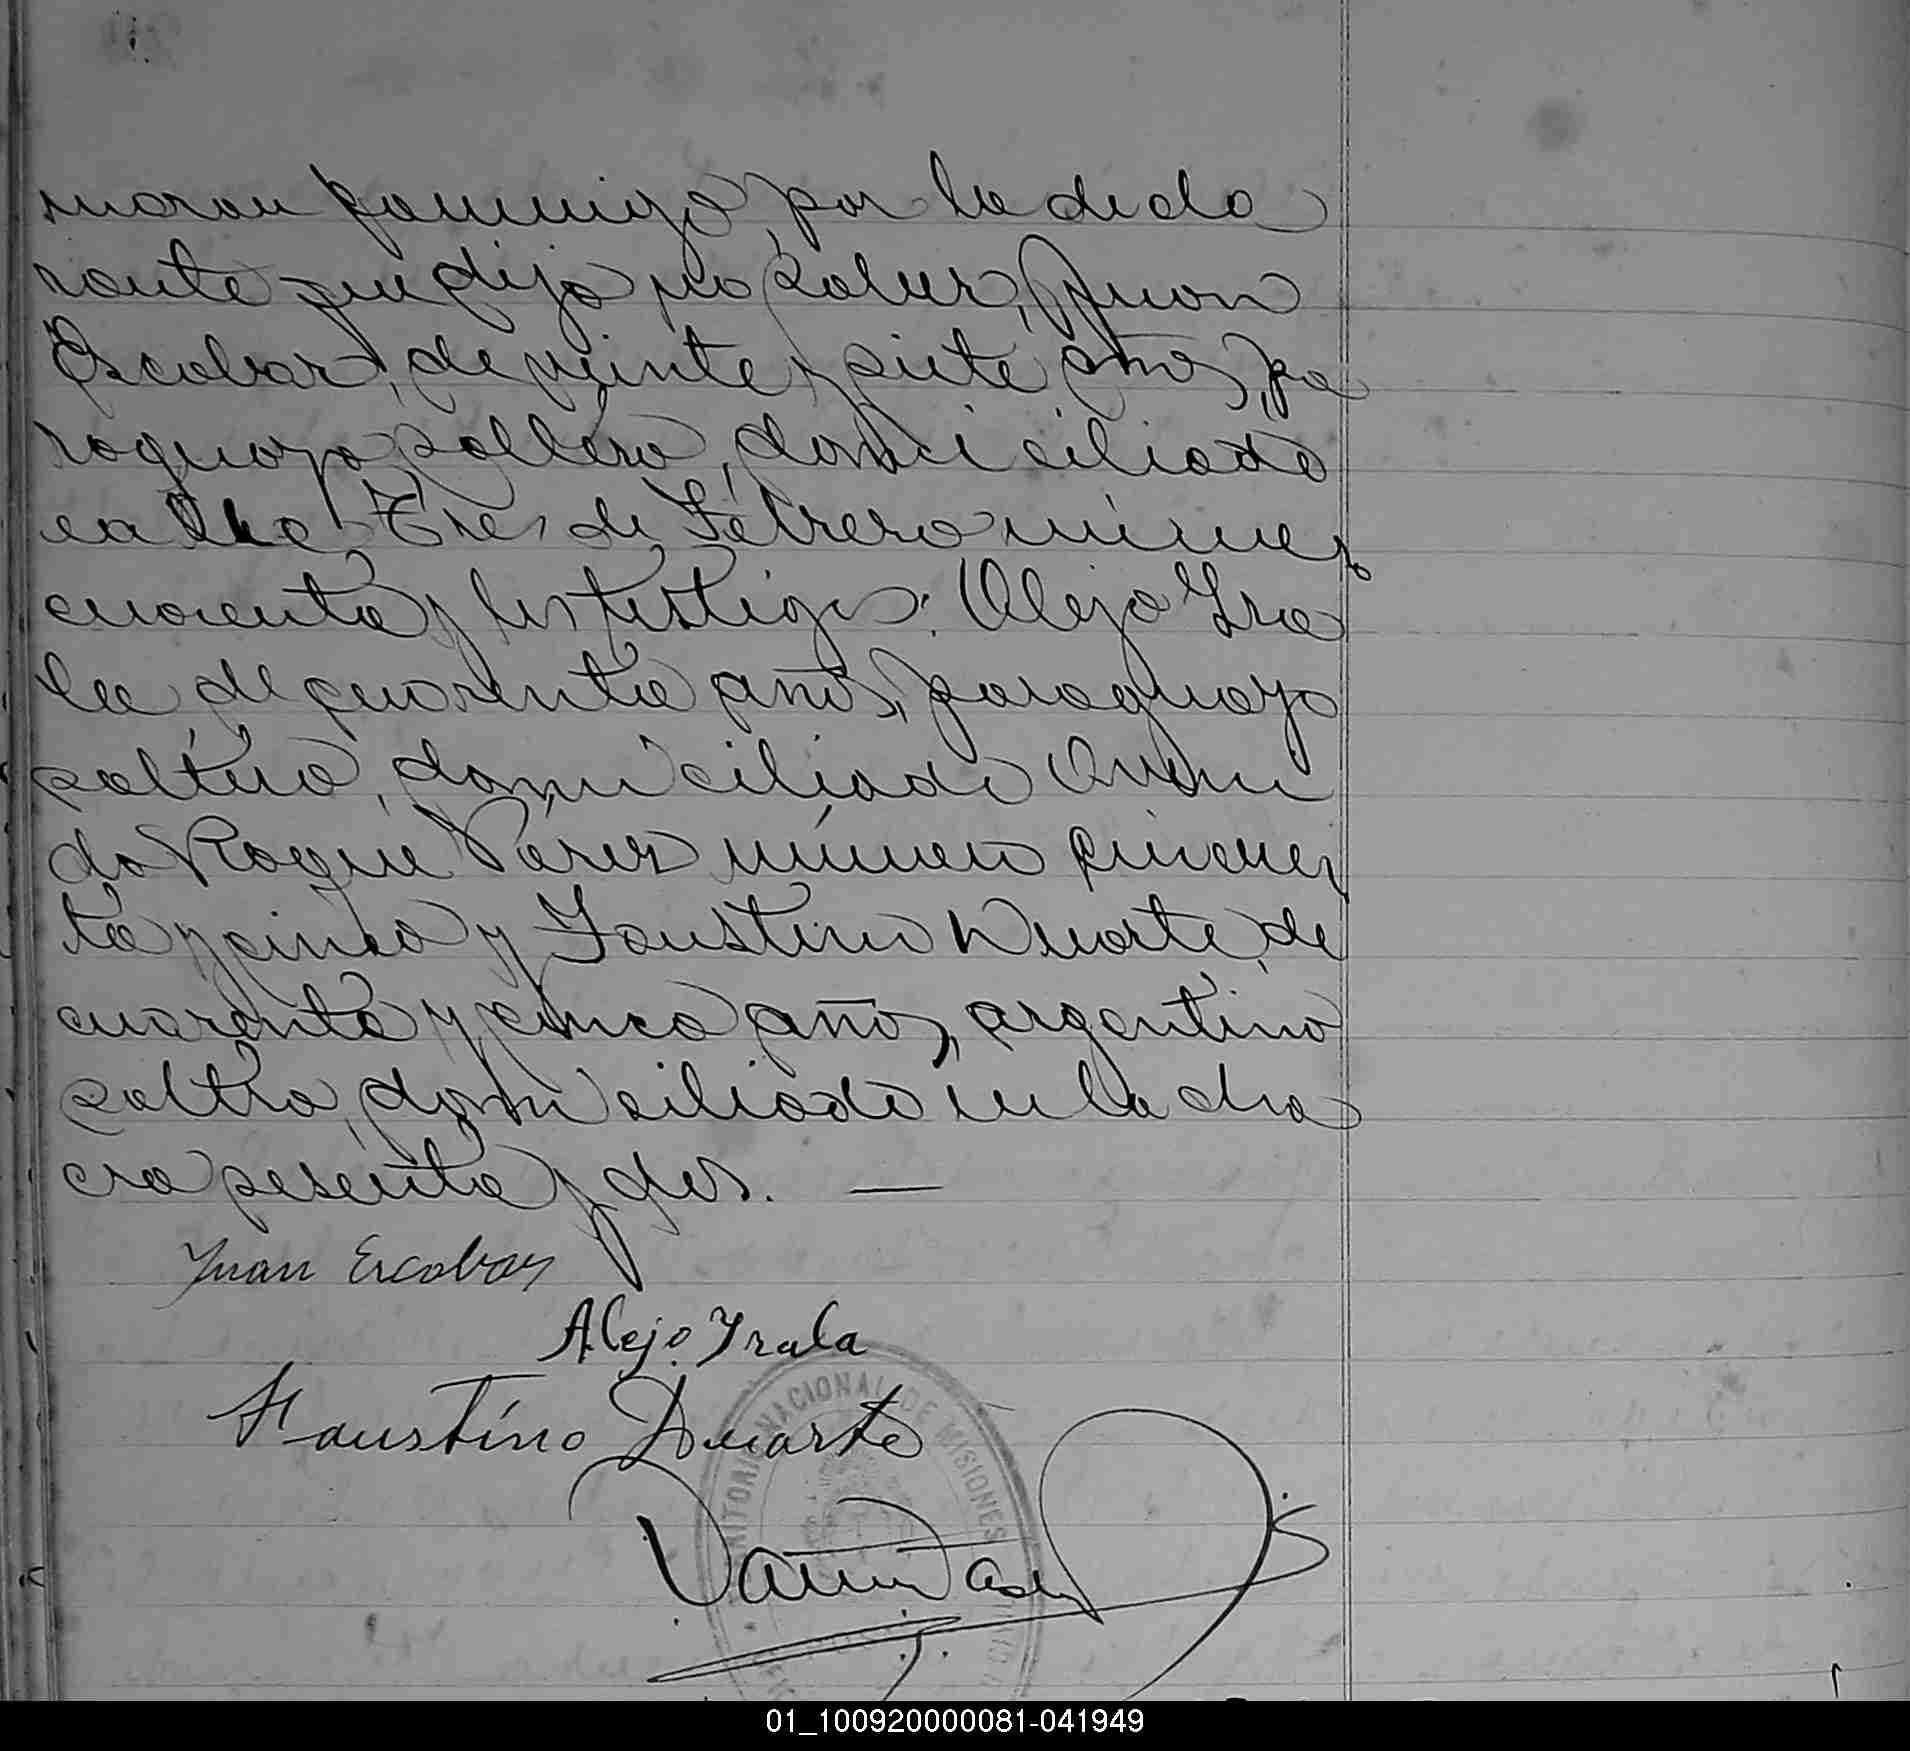 maron conmigo, por la decla
rante que dijo no saber, Juan
Escobar, de veinte y siete años, pa
raguayo, soltero, domiciliado
calle Tres de Febrero número
cuarenta y los testigos: Alejo Yra
la, de cuarenta años, paraguayo
soltero, domiciliado Aveni
da Roque Pérez número cincuen
ta y cinco y Faustino Duarte, de
cuarenta y cinco años, argentino
soltero, domiciliado en la cha
cra sesenta y dos. —
Juan Escobar
Alejo Yrala
Faustino Duarte
NACIONAL DE MISIONES
01_100920000081-041949